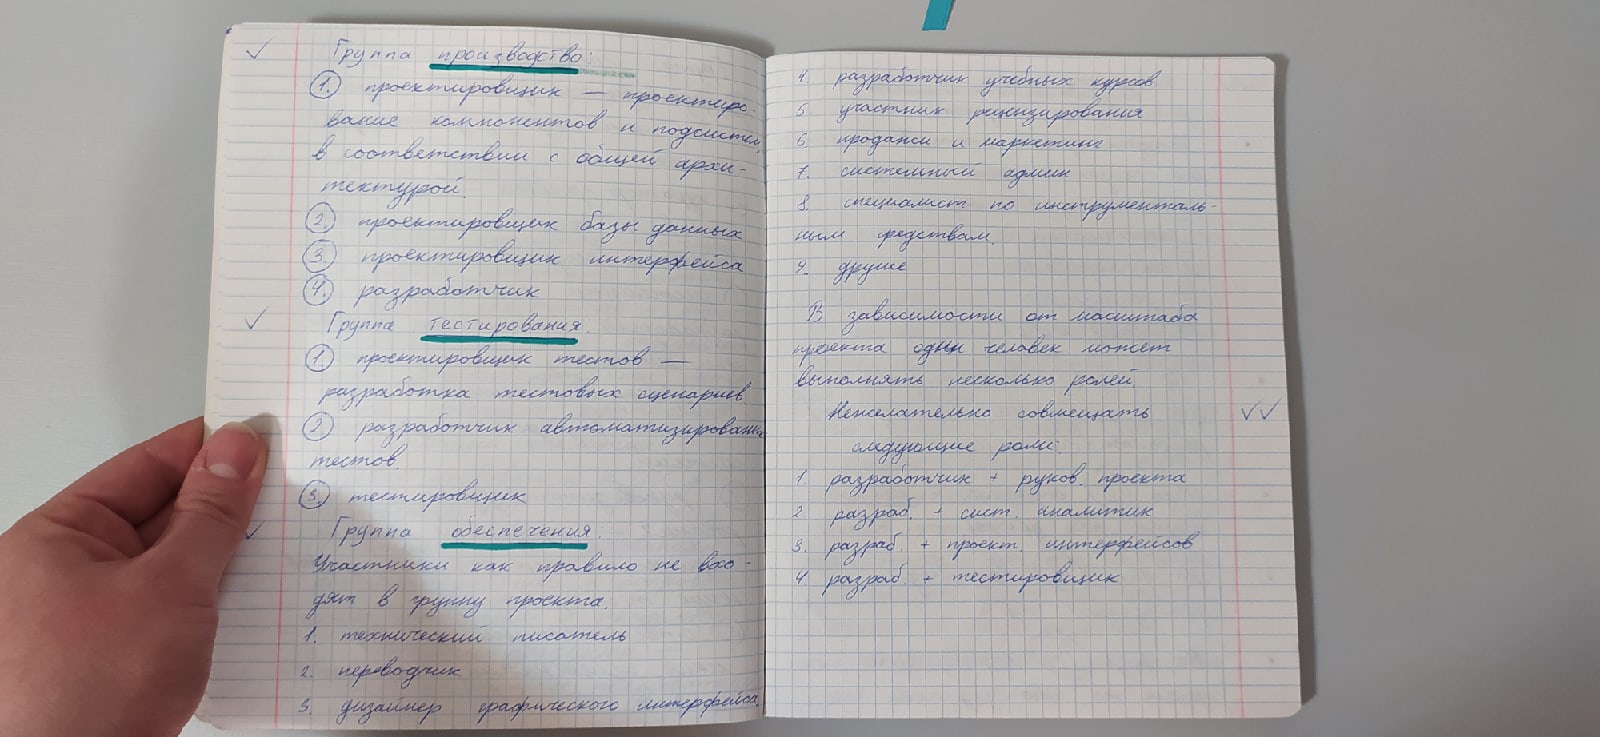 Группа производство:
1. проектировщик — проектиро
вание компонентов и подсистем,
в соответствии с общей архи-
тектурой.
2. проектировщик базы данных
3. проектировщик интерфейса
4. разработчик
Группа тестирования:
1. проектировщик тестов —
разработка тестовых сценариев.
2. разработчик автоматизированн
тестов.
3. тестировщик
Группа обеспечения:
Участники как правило не вхо-
дят в группу проекта.
1. технический писатель
2. переводчик
3. дизайнер графического интерфейса.
4. разработчик учебных курсов
5 участник рецизирования
6 продажи и маркетинг
7. системный админ
8. специалист по инструменталь-
ным средствам.
9. другие
В зависимости от масштаба
проекта один человек может
выполнять несколько ролей.
Нежелательно совмещать
следующие роли:
1. разработчик + руков. проекта
2 разраб. + сист. аналитик
3. разраб. + проект. интерфейсов
4 разраб + тестировщик